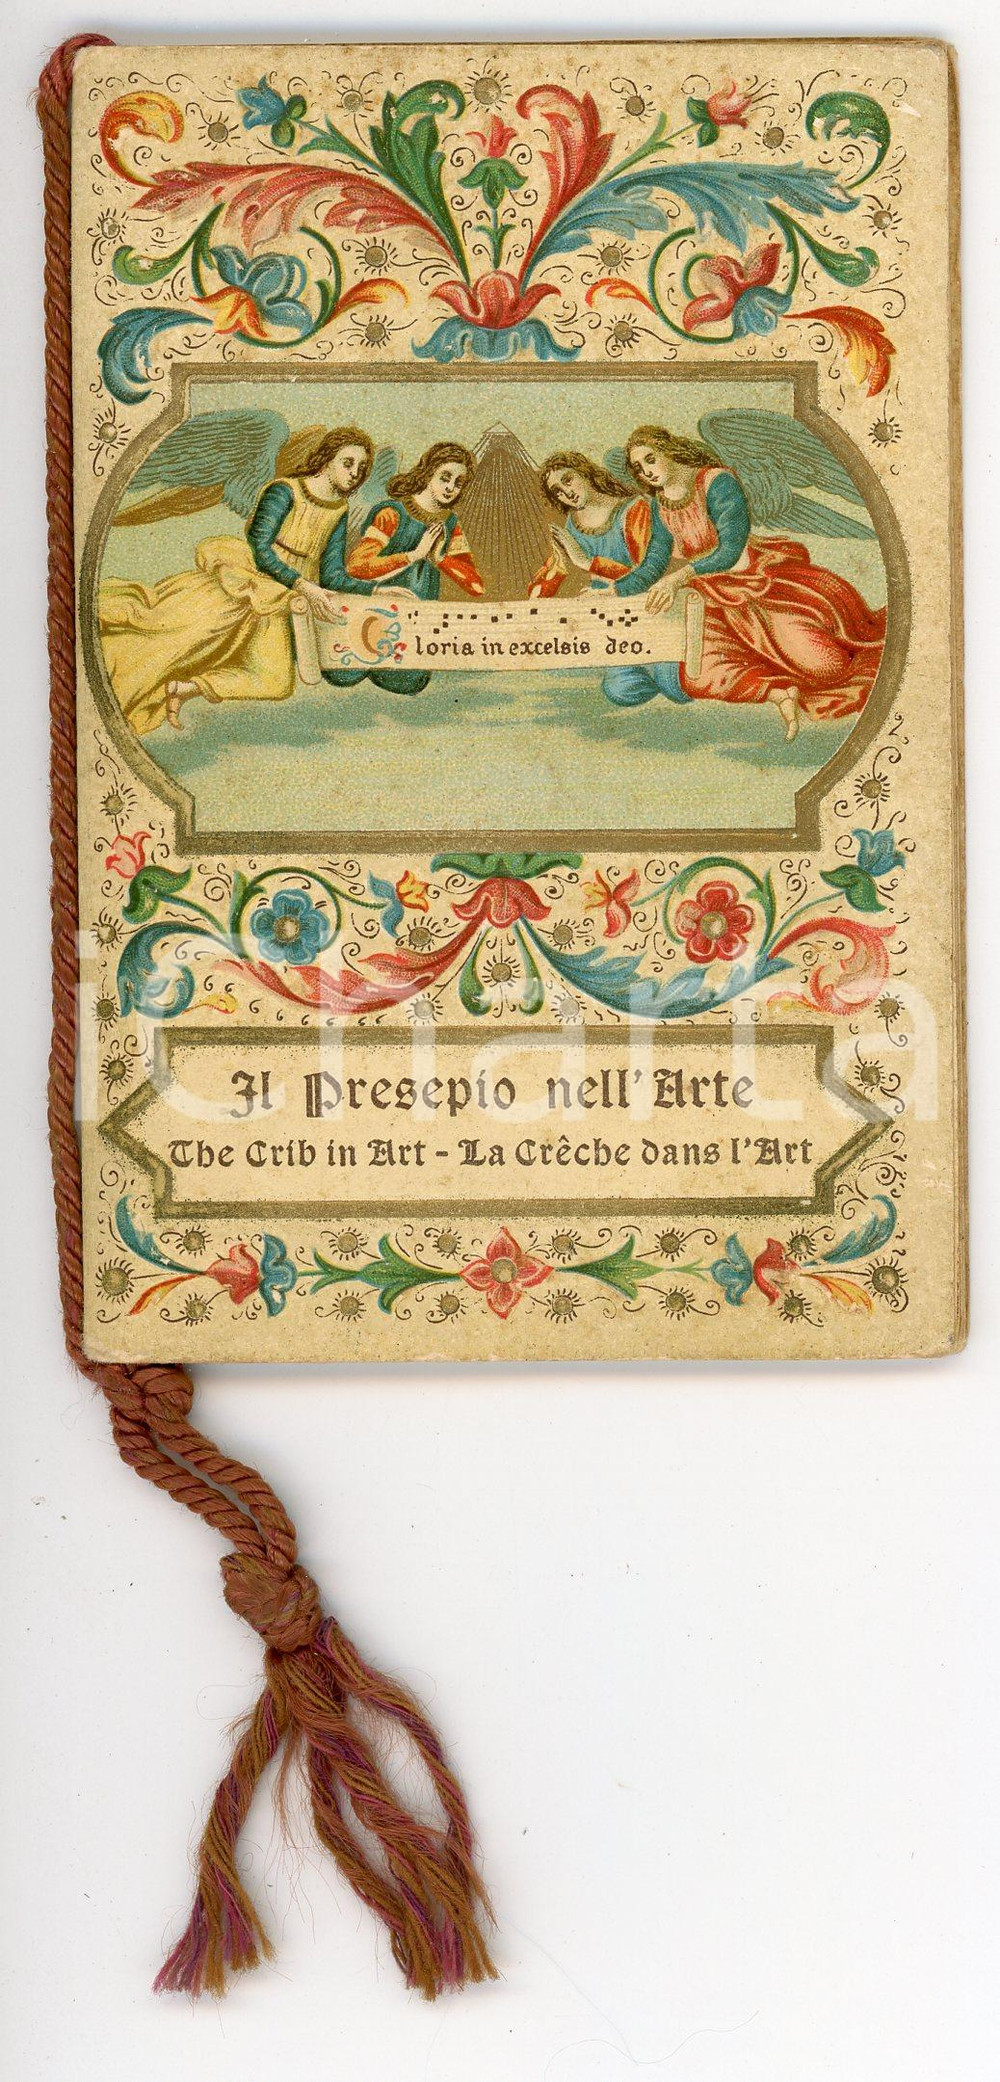 Gloria in excelsis deo.
Il Presepio nell'Arte
The Crib in Art - La Crêche dans l'Art